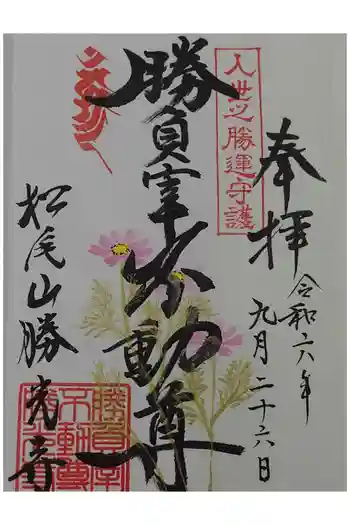 奉拝
令和六年
九月二十六日
人世之勝運守護
勝負宰不動尊
松尾山勝光寺
勝負宰
不動尊